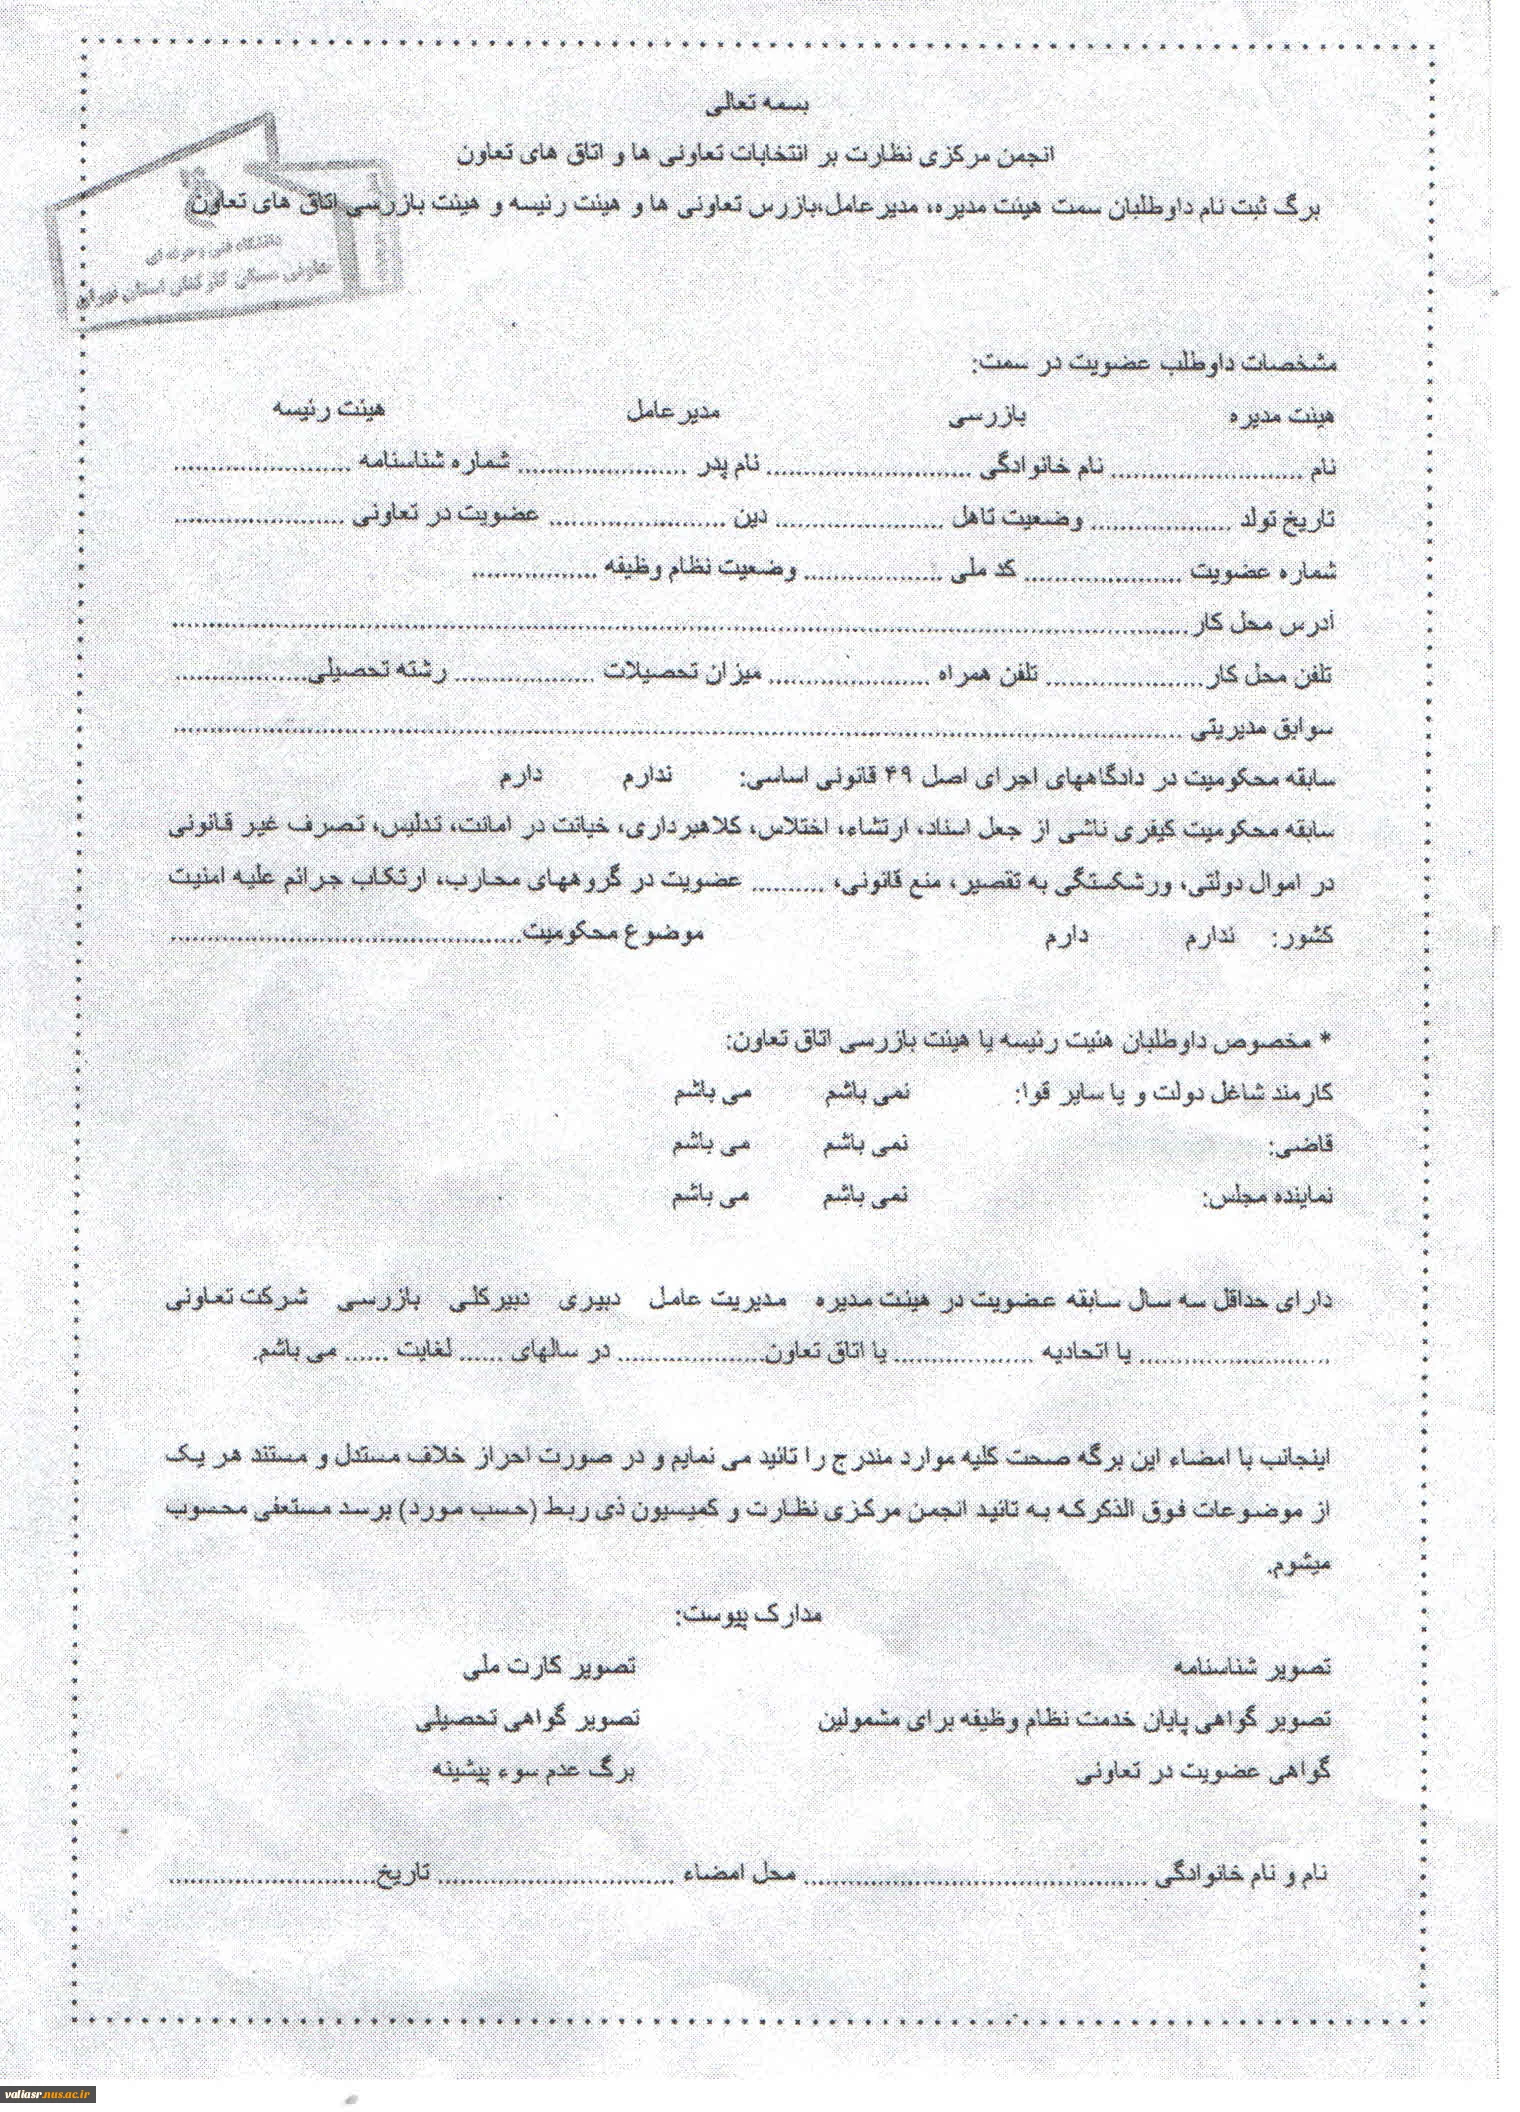 بسمه تعالی
انجمن مرکزی نظارت بر انتخابات تعاونی ها و اتاق های تعاون
برگ ثبت نام داوطلبان سمت هیئت مدیره، مدیرعامل،بازرس تعاونی ها و هیئت رئیسه و هیئت بازرسی اتاق های تعاون
دانشگاه فنی و حرفه ای
تعاونی مسکن کارکنان استان تهران
مشخصات داوطلب عضویت در سمت:
هیئت مدیره بازرسی مدیرعامل هیئت رئیسه
نام .......................... نام خانوادگی ............................ نام پدر ....................... شماره شناسنامه ........................
تاریخ تولد ................... وضعیت تاهل ....................... دین ........................ عضویت در تعاونی .......................
شماره عضویت ..................... کد ملی ................... وضعیت نظام وظیفه .................
آدرس محل کار..........................................................................................................................................
تلفن محل کار...................... تلفن همراه ...................... میزان تحصیلات ................... رشته تحصیلی..................
سوابق مدیریتی .........................................................................................................................................
سابقه محکومیت در دادگاههای اجرای اصل ۴۹ قانونی اساسی: ندارم دارم
سابقه محکومیت کیفری ناشی از جعل اسناد، ارتشاء، اختلاس، کلاهبرداری، خیانت در امانت، تدلیس، تصرف غیر قانونی
در اموال دولتی، ورشکستگی به تقصیر، منع قانونی، .......... عضویت در گروههای محارب، ارتکاب جرائم علیه امنیت
کشور: ندارم دارم موضوع محکومیت................................................
* مخصوص داوطلبان هئیت رئیسه یا هیئت بازرسی اتاق تعاون:
کارمند شاغل دولت و یا سایر قوا: نمی باشم می باشم
قاضی: نمی باشم می باشم
نماینده مجلس: نمی باشم می باشم
دارای حداقل سه سال سابقه عضویت در هیئت مدیره مدیریت عامل دبیری دبیرکلی بازرسی شرکت تعاونی
.......................... یا اتحادیه ................... یا اتاق تعاون.................... در سالهای ...... لغایت ...... می باشم.
اینجانب با امضاء این برگه صحت کلیه موارد مندرج را تائید می نمایم و در صورت احراز خلاف مستدل و مستند هر یک
از موضوعات فوق الذکرکه به تائید انجمن مرکزی نظارت و کمیسیون ذی ربط (حسب مورد) برسد مستعفی محسوب
میشوم.
مدارک پیوست:
تصویر شناسنامه تصویر کارت ملی
تصویر گواهی پایان خدمت نظام وظیفه برای مشمولین تصویر گواهی تحصیلی
گواهی عضویت در تعاونی برگ عدم سوء پیشینه
نام و نام خانوادگی ............................................... محل امضاء ................................ تاریخ............................
valiasr.nus.ac.ir